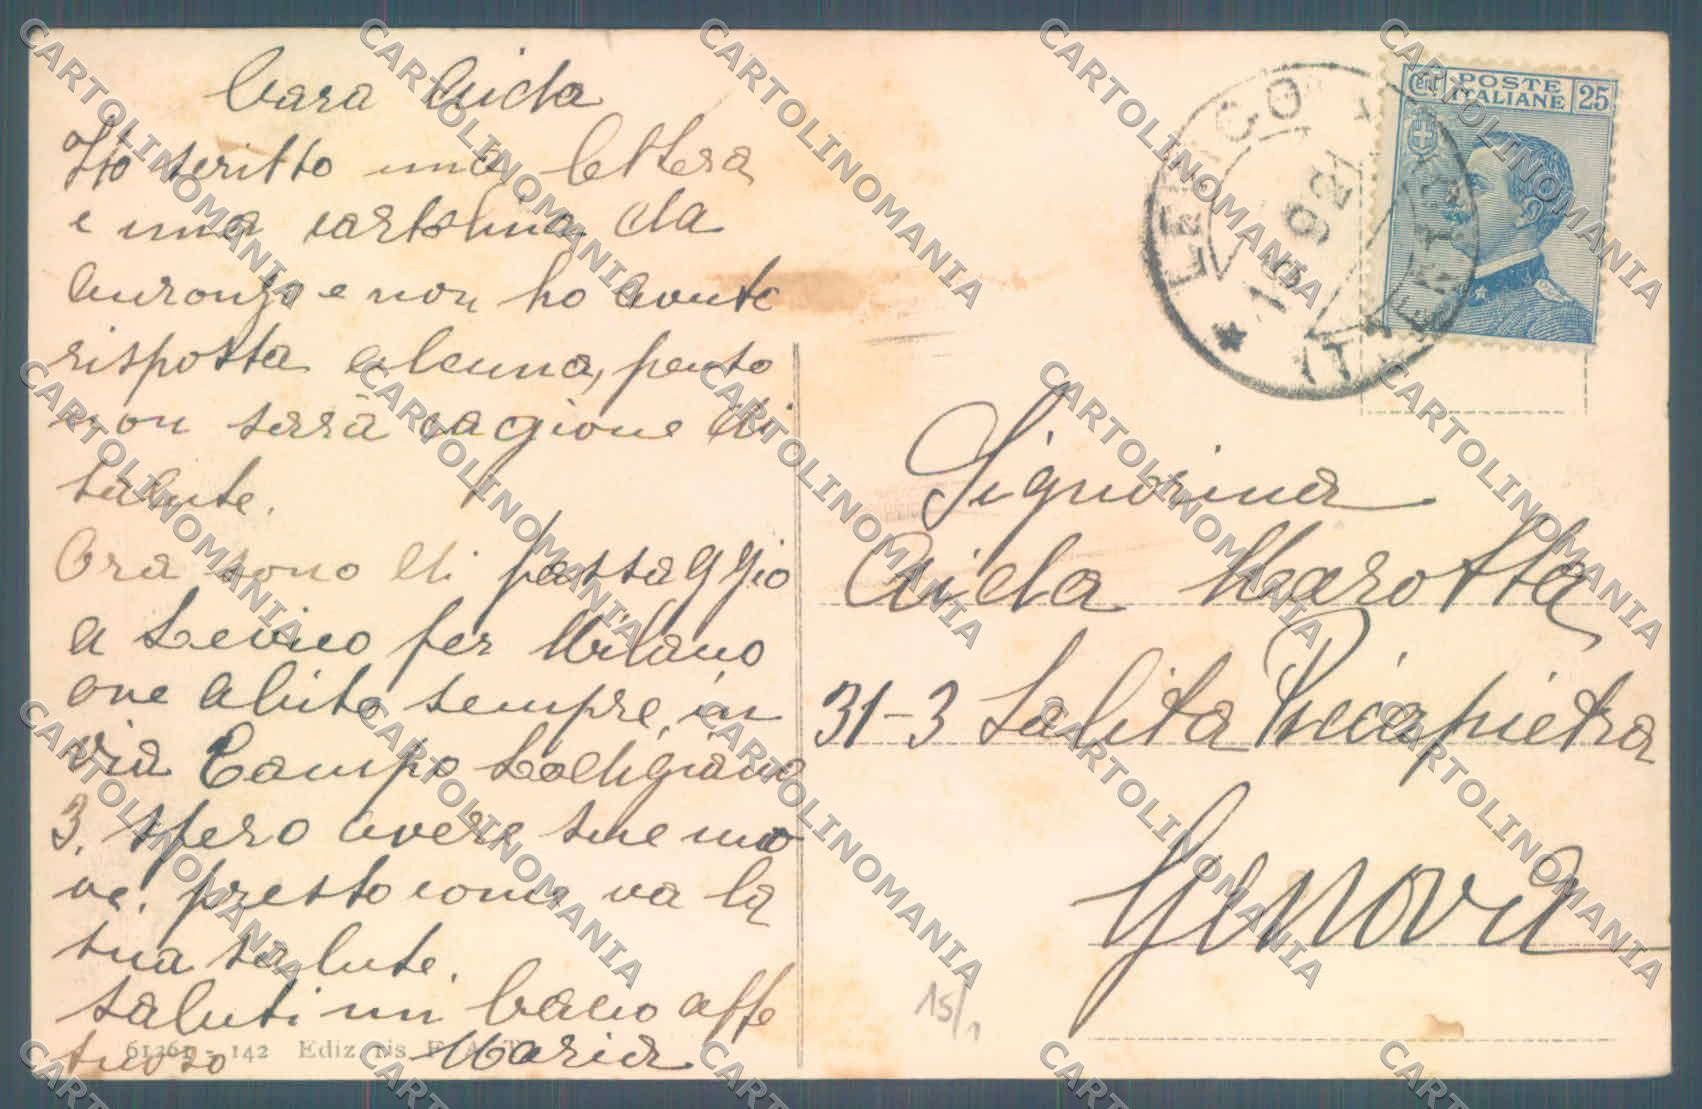 Cara Aida
Ho scritto una lettera
e una cartolina da
Auronzo e non ho avuto
risposta alcuna, penso
non sarà cagione di
salute.
Ora sono di passaggio
a Levico per Milano
ove abito sempre, in
via Campo Lodigiano
3. spero avere sue nuo
ve. presto come va la
sua salute.
saluti un bacio affe
tuoso Maria
61261 - 142 Ediz.
POSTE
ITALIANE
Cent 25
LEVICO
9 21
Signorina
Aida Marotta
31-3 Salita Piccapietra
Genova
15/1
CARTOLINOMANIA